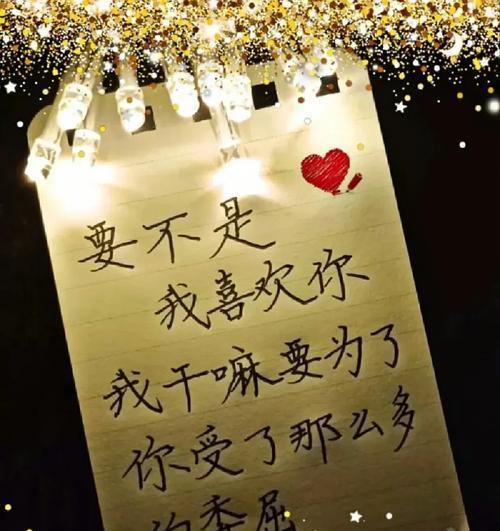 要不是
我喜欢你
我干嘛要为了
你受了那么多
的委屈